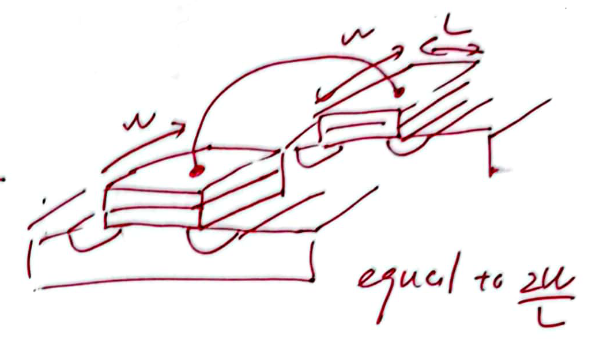 W
L
W
equal to 2W/L